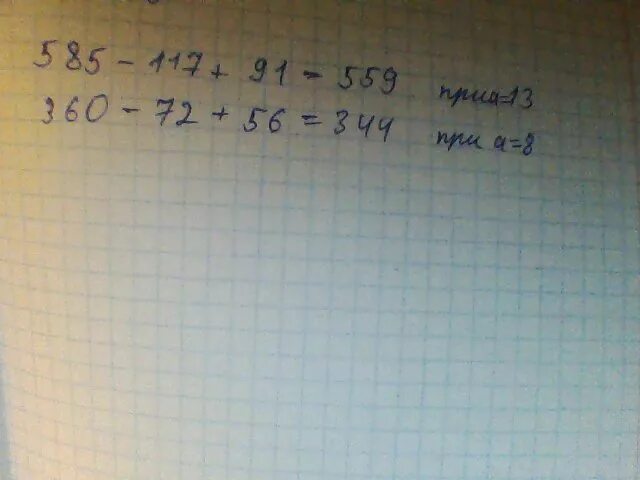 585 - 117 + 91 = 559 при а=13
360 - 72 + 56 = 344 при а=8